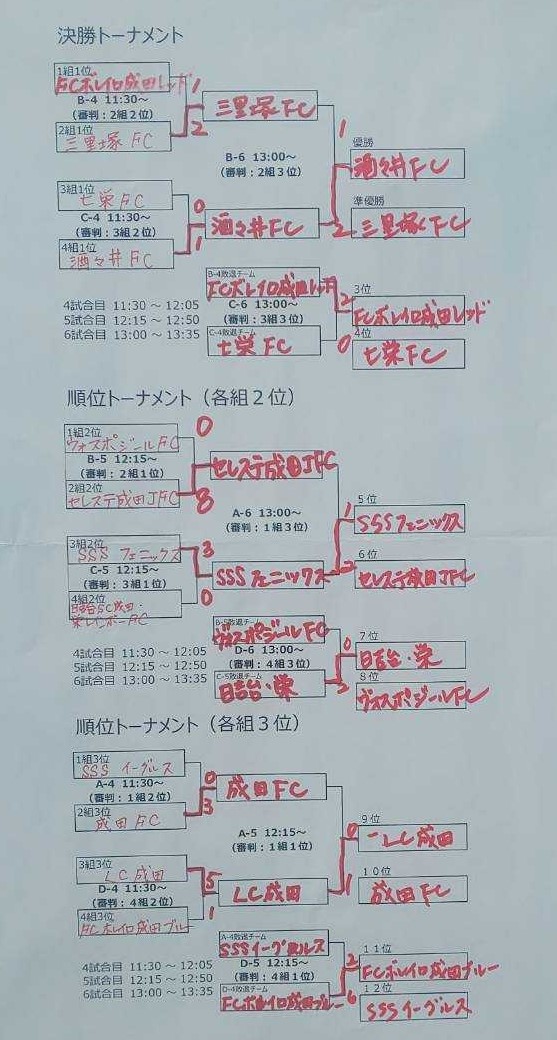 決勝トーナメント
1組1位
FCボレイロ成田レッド
1
B-4 11:30～
(審判：2組2位)
三里塚FC
2組1位
2
三里塚FC
1
B-6 13:00～
(審判：2組3位)
優勝
酒々井FC
3組1位
七栄FC
0
準優勝
C-4 11:30～
(審判：3組2位)
酒々井FC
2
三里塚FC
4組1位
1
酒々井FC
B-4敗退チーム
FCボレイロ成田レッド
2
3位
4試合目 11:30 ～ 12:05
C-6 13:00～
FCボレイロ成田レッド
5試合目 12:15 ～ 12:50
(審判：3組3位)
6試合目 13:00 ～ 13:35
C-4敗退チーム
七栄FC
0
4位
七栄FC
順位トーナメント（各組２位）
0
1組2位
ヴォスポジールFC
B-5 12:15～
(審判：2組1位)
セレステ成田JFC
2組2位
セレステ成田JFC
8
A-6 13:00～
(審判：1組3位)
1
5位
SSSフェニックス
3組2位
SSS フェニックス
3
C-5 12:15～
(審判：3組1位)
SSS フェニックス
2
6位
セレステ成田JFC
4組2位
0
日吉台FC成田・
栄レインボーFC
B-5敗退チーム
ヴォスポジールFC
0
7位
4試合目 11:30 ～ 12:05
D-6 13:00～
日吉台・栄
5試合目 12:15 ～ 12:50
(審判：4組3位)
6試合目 13:00 ～ 13:35
C-5敗退チーム
日吉台・栄
3
8位
ヴォスポジールFC
順位トーナメント（各組３位）
1組3位
SSS イーグルス
0
A-4 11:30～
(審判：1組2位)
成田FC
2組3位
3
成田FC
A-5 12:15～
(審判：1組1位)
0
9位
LC成田
3組3位
LC成田
5
D-4 11:30～
(審判：4組2位)
LC成田
1
10位
成田FC
4組3位
1
FCボレイロ成田ブルー
A-4敗退チーム
SSSイーグルス
2
11位
4試合目 11:30 ～ 12:05
D-5 12:15～
FCボレイロ成田ブルー
5試合目 12:15 ～ 12:50
(審判：4組1位)
6試合目 13:00 ～ 13:35
D-4敗退チーム
FCボレイロ成田ブルー
6
12位
SSSイーグルス